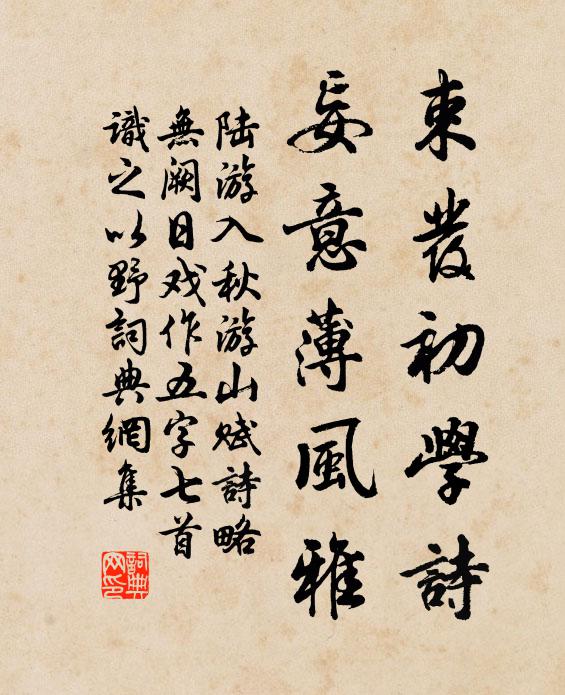 束發初學詩
妄意薄風雅
陸游入秋游山賦詩略
無闕日戏作五字七首
識之以野詞典網集
詞典网印